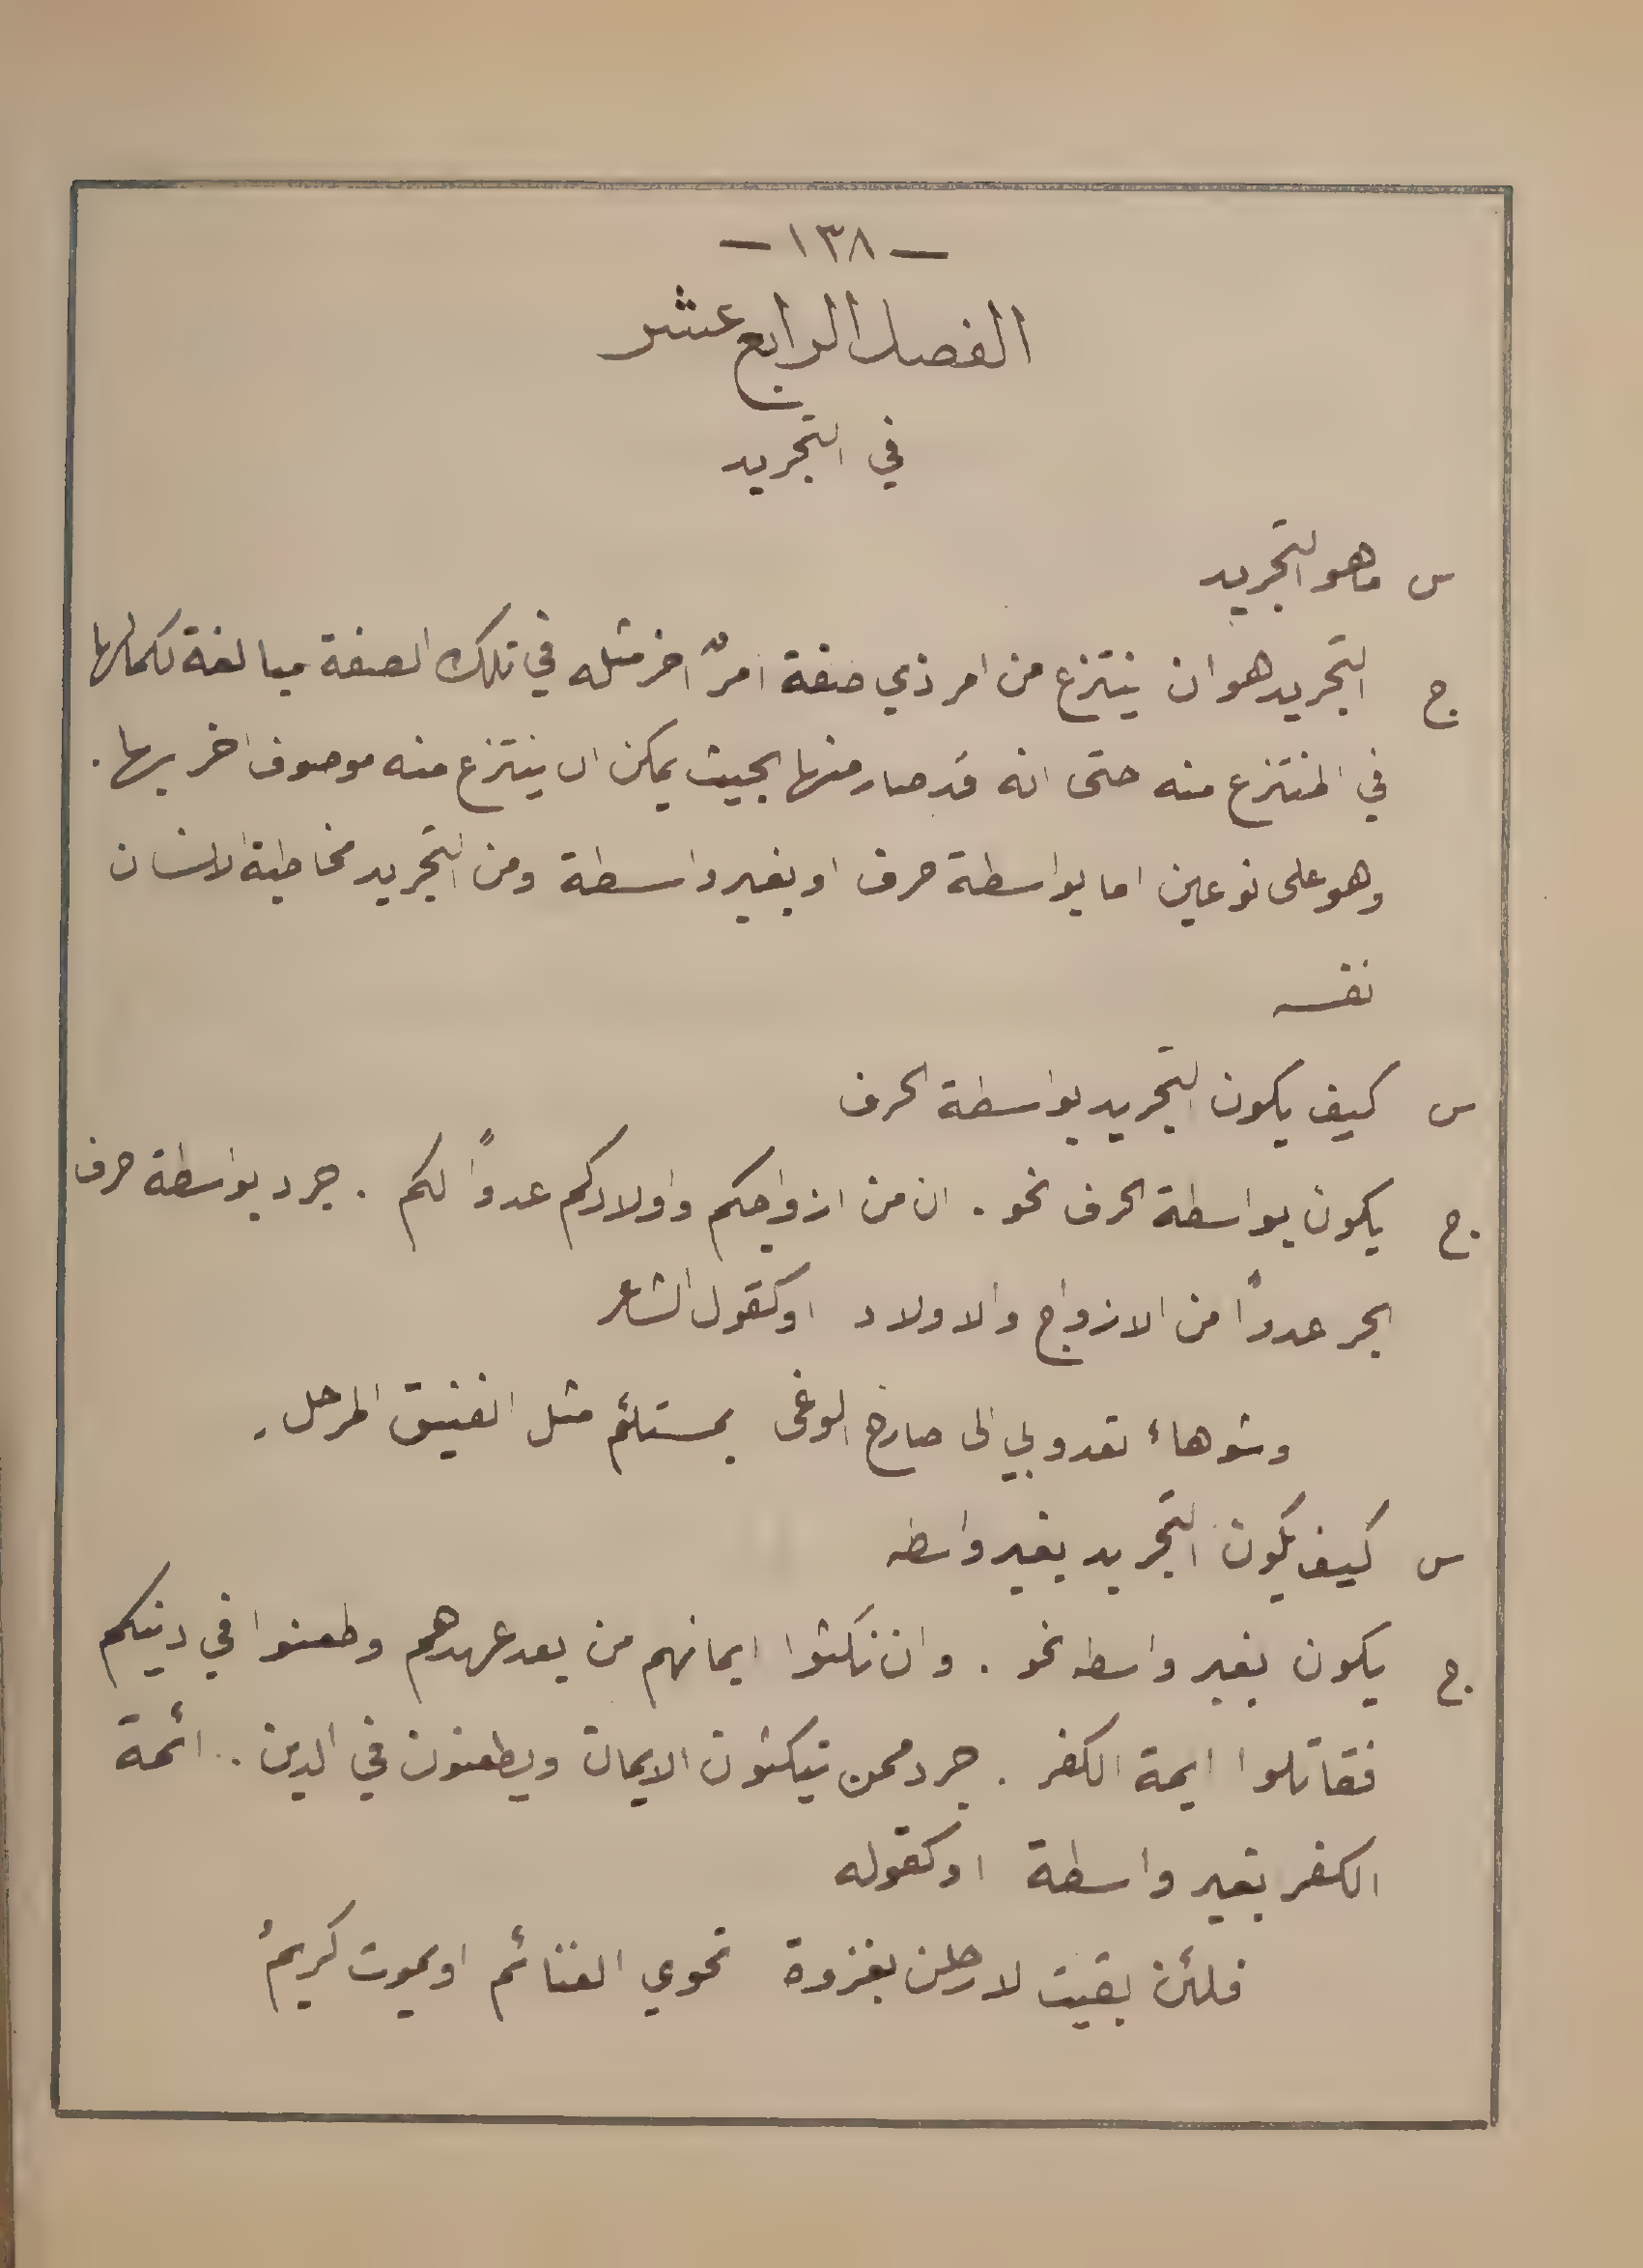 — ١٣٨ —
الفصل الرابع عشر
في التجريد
س ماهو التجريد
ج التجريد هو ان ينتزع من امر ذي صفة امرٌ اخر مثله في تلك الصفة مبالغة لكمالها
في المنتزع منه حتى انه قد صار منها بحيث يمكن ان ينتزع منه موصوف اخر بها .
وهو على نوعين اما بواسطة حرف او بغير واسطة ومن التجريد مخاطبة الانسان
نفسه
س كيف يكون التجريد بواسطة الحرف
ج يكون بواسطة الحرف نحو . ان من ازواجكم واولادكم عدوًا لكم . جرد بواسطة حرف
الجر عدوًا من الازواج والاولاد اوكقول الشاعر
وشوهاء تعدو بي الى صارخ الوغى بمستلئم مثل الفنيق المرحل .
س كيف يكون التجريد بغير واسطه
ج يكون بغير واسطه نحو . وان نكثوا ايمانهم من بعد عهدهم وطعنوا في دينكم
فقاتلوا ايمة الكفر . جرد ممن ينكثون الايمان ويطعنون في الدين .. ائمة
الكفر بغير واسطة اوكقوله
فلئن بقيت لارحلن بغزوة تحوي الغنائم اويموت كريمُ